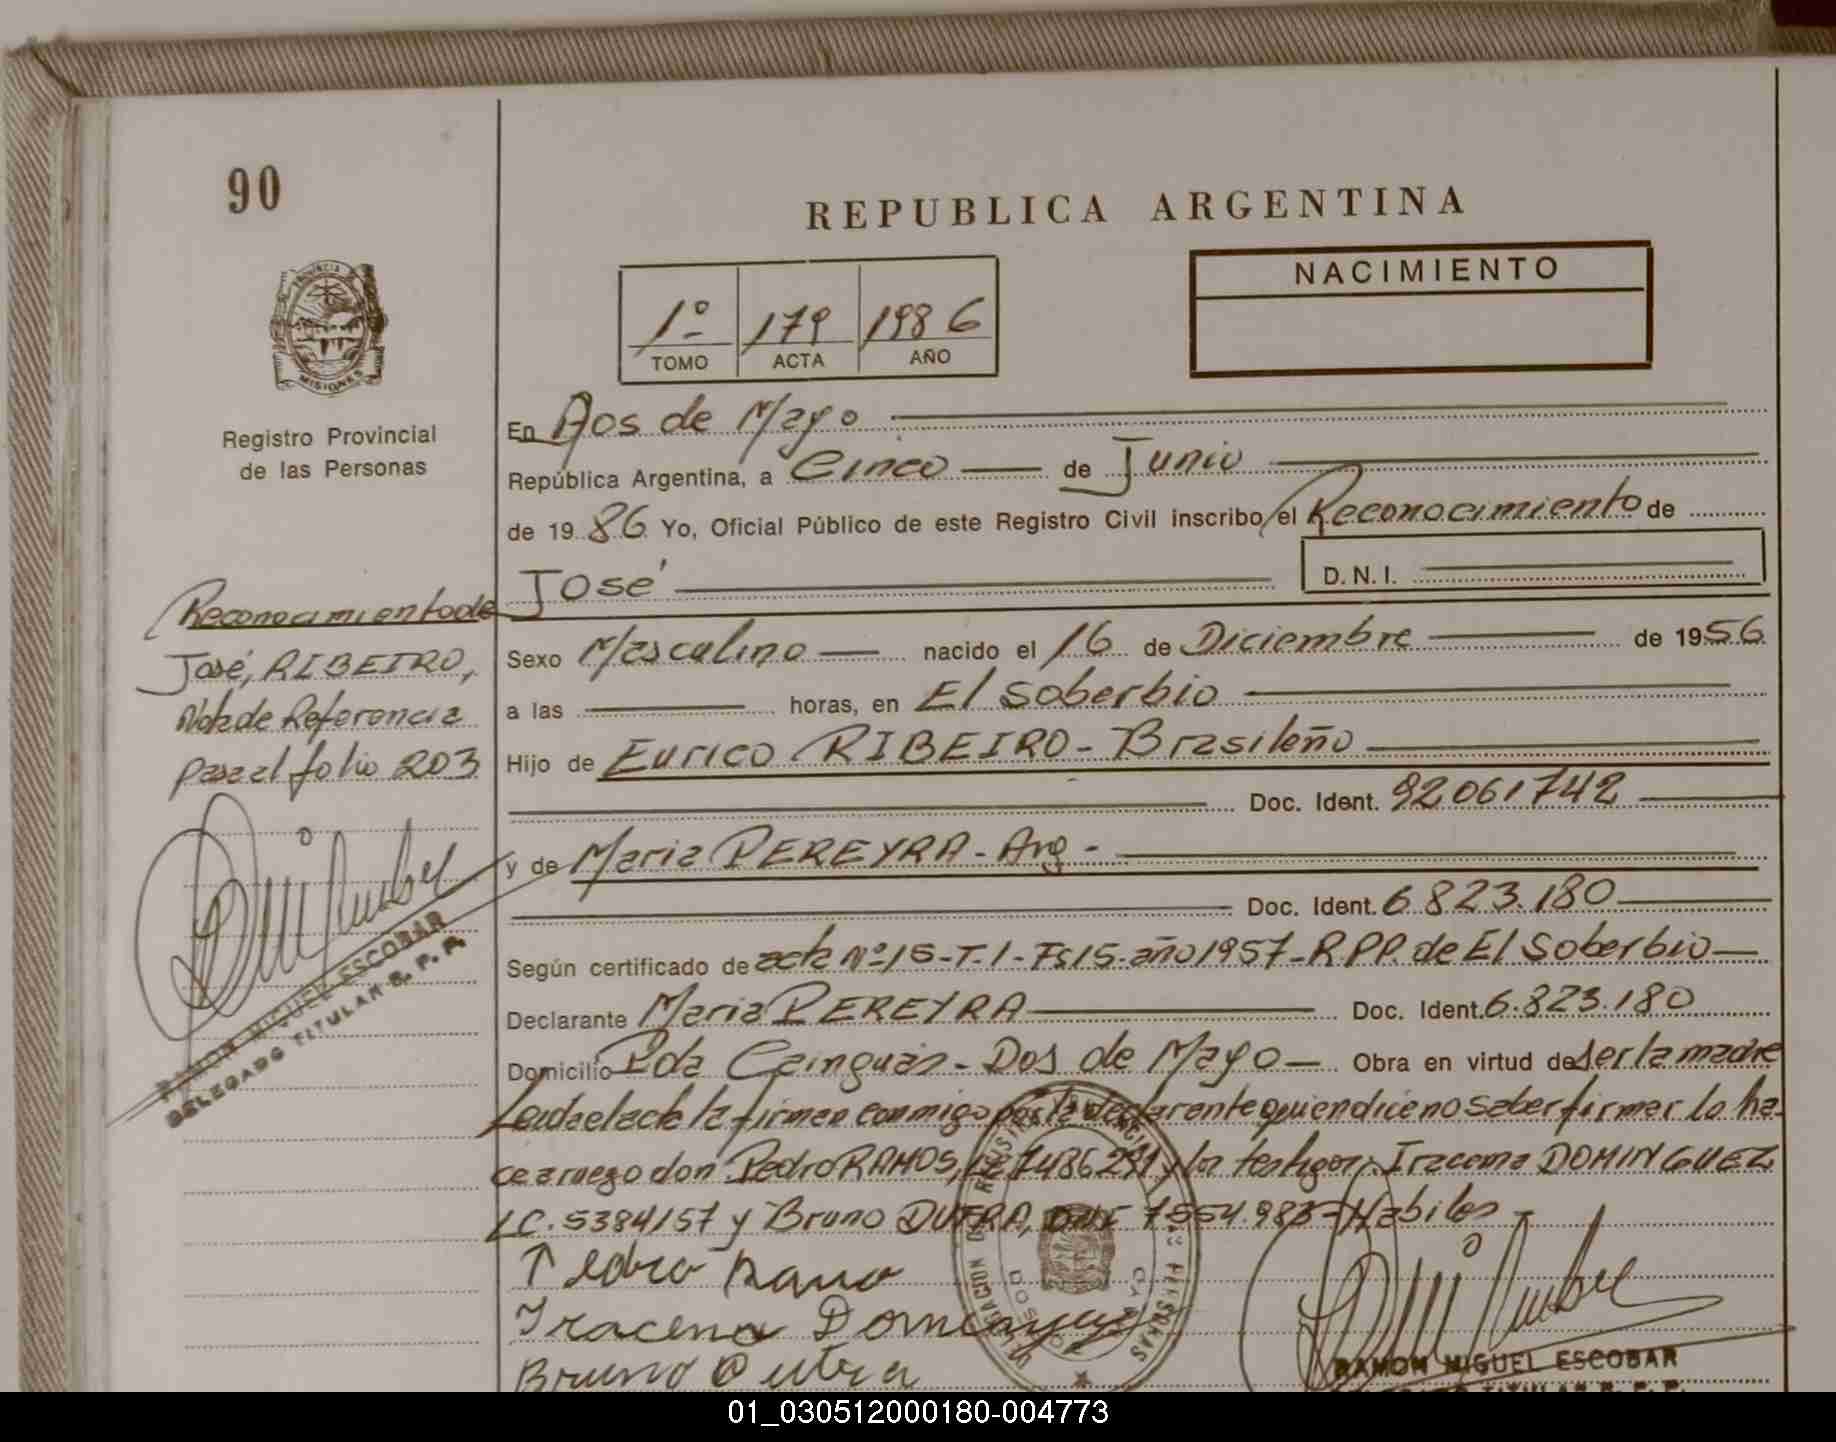 90
REPUBLICA ARGENTINA
NACIMIENTO
1º 179 1986
TOMO ACTA AÑO
PROVINCIA DE
MISIONES
Registro Provincial
de las Personas
En Dos de Mayo
República Argentina, a Cinco de Junio
de 1986 Yo, Oficial Público de este Registro Civil inscribo el Reconocimiento de
José D.N.I.
Reconocimiento de
José, RIBEIRO,
Nota de Referencia
pasa al folio 203
Sexo Masculino nacido el 16 de Diciembre de 1956
a las horas, en El Soberbio
Hijo de Eurico RIBEIRO - Brasileño
Doc. Ident. 92061742
y de Maria PEREYRA - Arg -
Doc. Ident. 6.823.180
RAMON MIGUEL ESCOBAR
DELEGADO TITULAR R. P. P.
Según certificado de acta Nº 15 - T. 1 - Fs 15 - año 1957 - R.P.P. de El Soberbio
Declarante Maria PEREYRA Doc. Ident. 6.823.180
Domicilio Pda Cainguás - Dos de Mayo Obra en virtud de ser la madre
Leida el acta la firman conmigo por la declarante quien dice no saber firmar lo ha-
ce a ruego don Pedro RAMOS, 7486291 y los testigos, Iracema DOMINGUEZ
LC. 5384157 y Bruno DUTRA, DNI 7554.983 - Habiles -
Pedro Ramo
Iracema Dominguez
Bruno Dutra
RAMON MIGUEL ESCOBAR
01_030512000180-004773